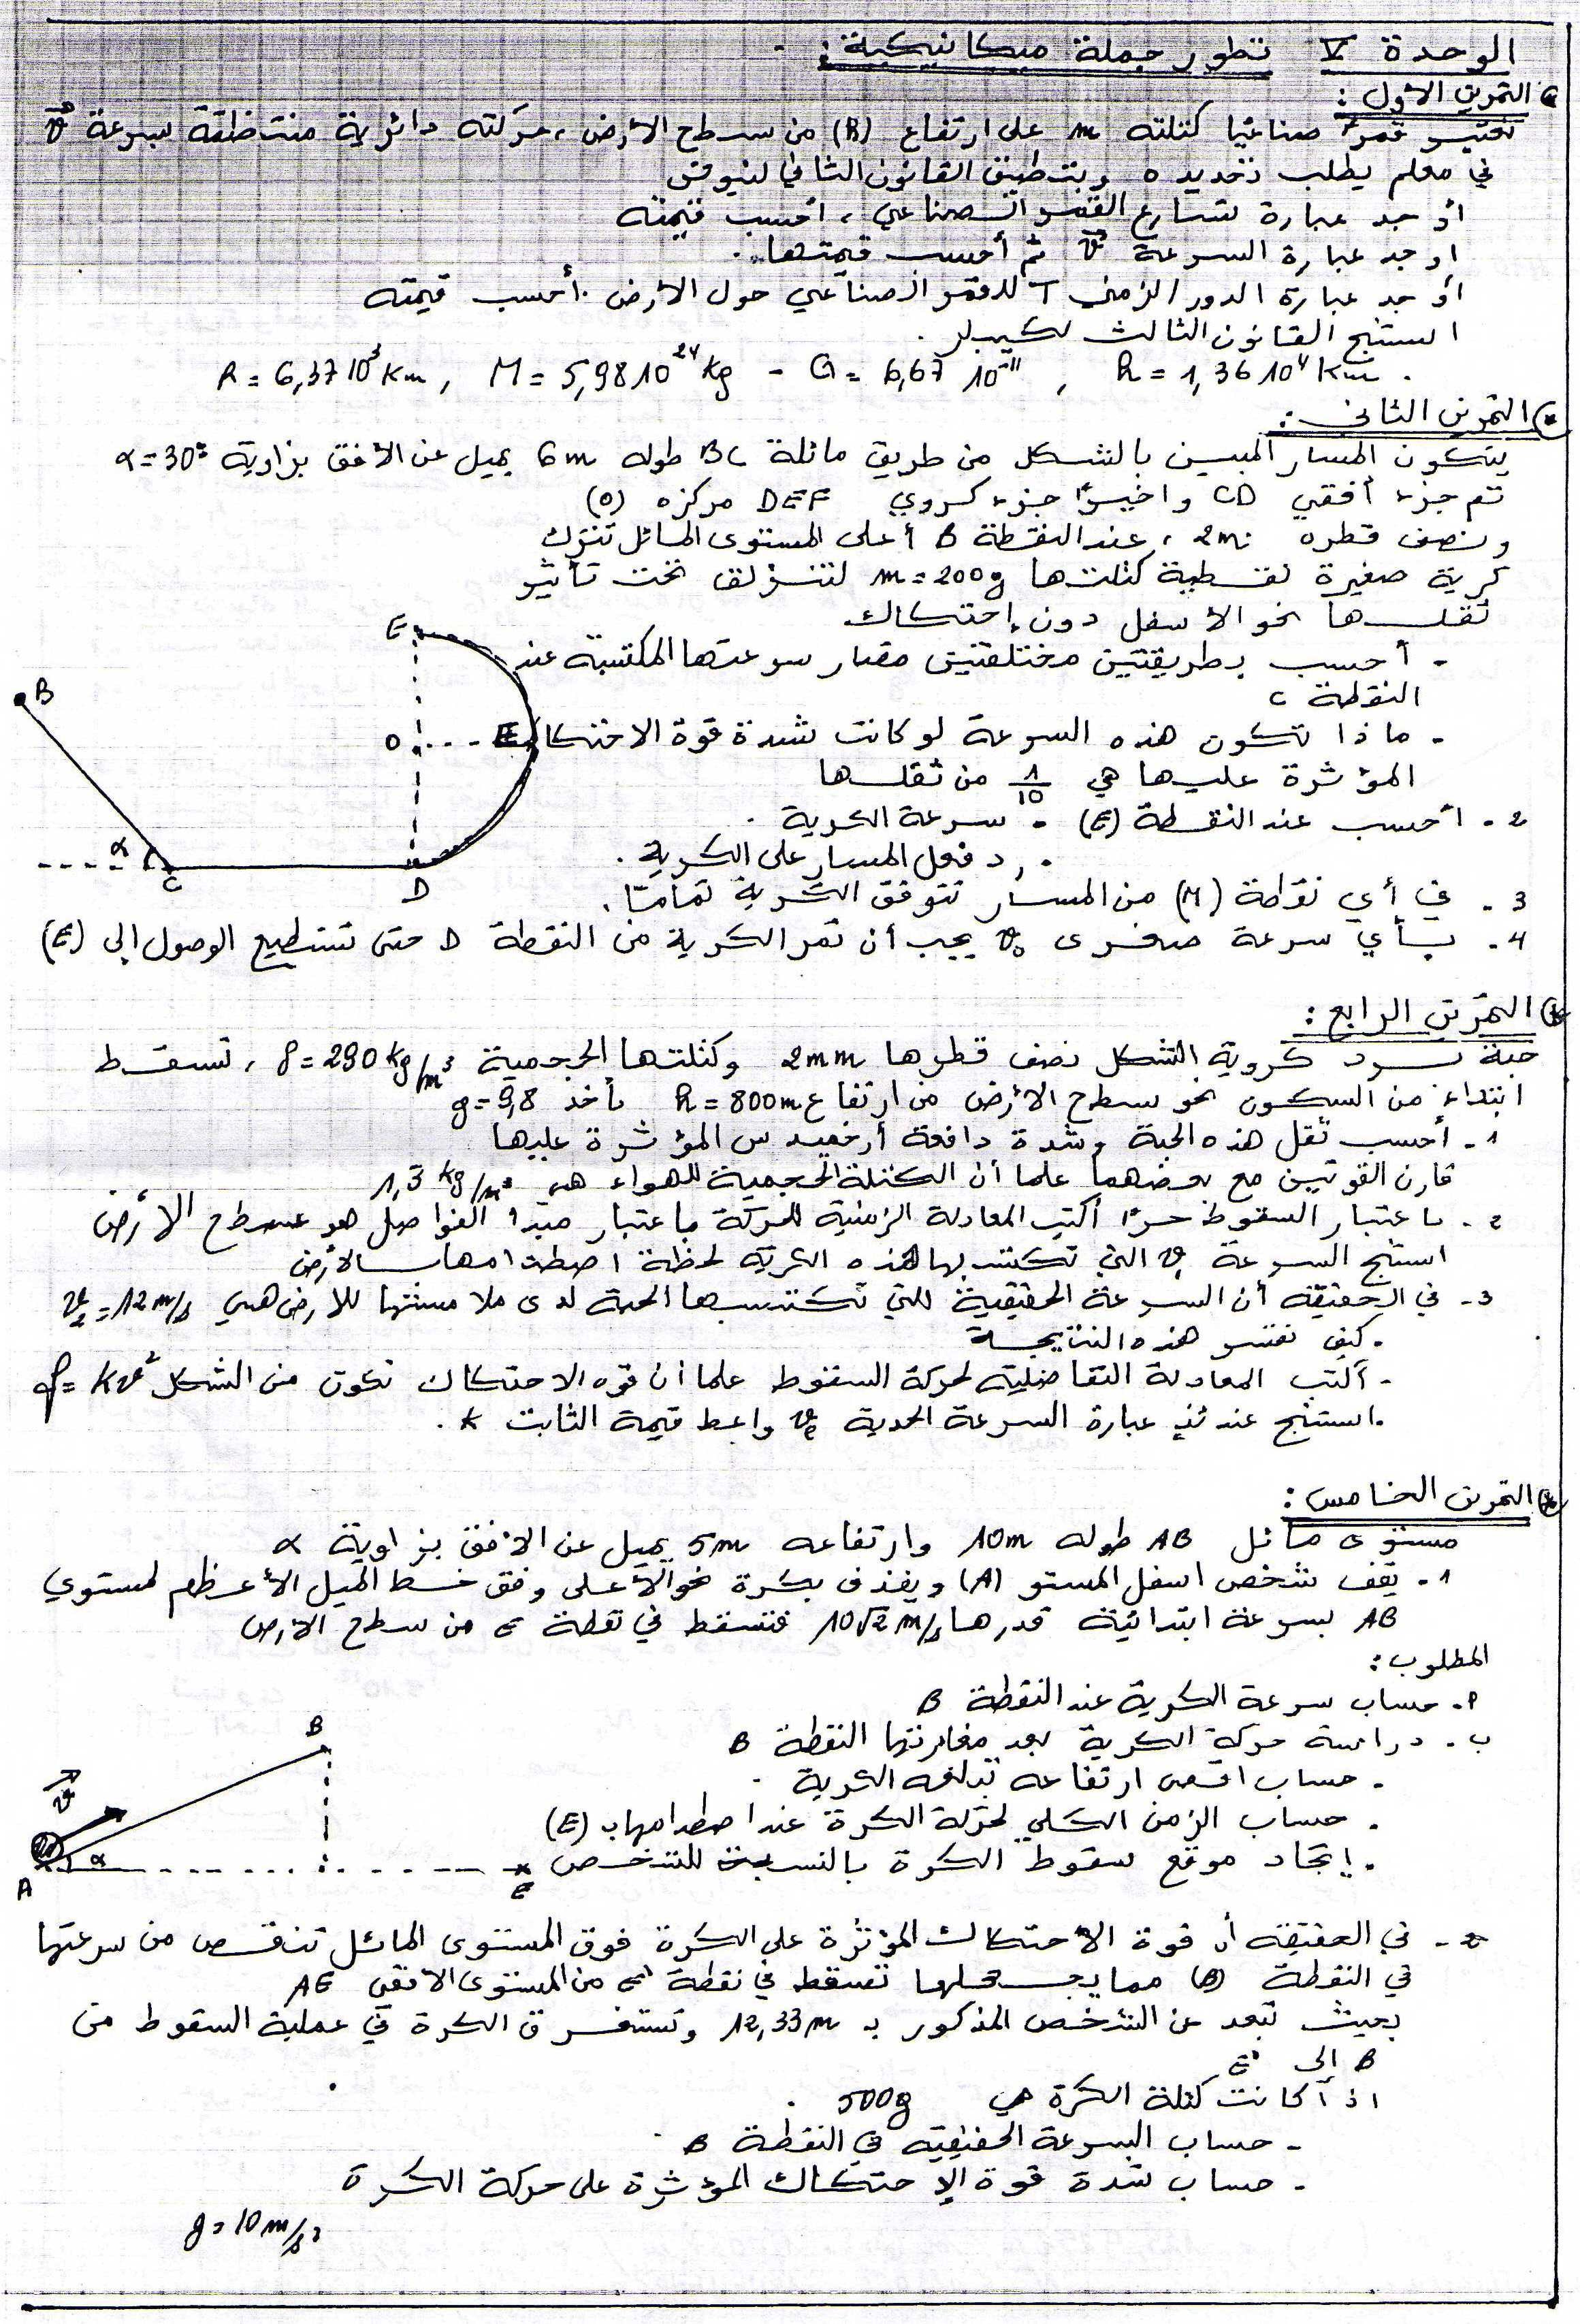 الوحدة V تطور جملة ميكانيكية :
التمرين الأول :
نعتبر قمرا صناعيا كتلته m على ارتفاع (h) من سطح الأرض ، حركته دائرية منتظمة بسرعة v
في معلم يطلب تحديده وبتطبيق القانون الثاني لنيوتن
أوجد عبارة تسارع القمر الصناعي ، احسب قيمته
اوجد عبارة السرعة v ثم أحسب قيمتها .
أوجد عبارة الدور الزمني T للقمر الصناعي حول الأرض . أحسب قيمته
استنتج القانون الثالث لكيبلر .
R = 6,37 10³ Km , M = 5,98 10²⁴ Kg - G = 6,67 10⁻¹¹ , h = 1,36 10⁴ Km .
التمرين الثاني :
يتكون المسار المبين بالشكل من طريق مائلة BC طوله 6m يميل عن الأفق بزاوية α = 30°
ثم جزء أفقي CD واخيرا جزء كروي DEF مركزه (O)
ونصف قطره 2m ، عند النقطة B أعلى المستوى المائل تترك
كرية صغيرة نقطية كتلتها m = 200g لتنزلق تحت تأثير
ثقلها نحو الأسفل دون إحتكاك
- أحسب بطريقتين مختلفتين مقدار سرعتها المكتسبة عند
النقطة C
- ماذا تكون هذه السرعة لو كانت شدة قوة الاحتكاك
المؤثرة عليها هي 1/10 من ثقلها
2 - احسب عند النقطة (E) - سرعة الكرية .
- رد فعل المسار على الكرية .
3 - في أي نقطة (M) من المسار تتوقف الكرية تماما .
4 - بأي سرعة صغرى v₀ يجب أن تمر الكرية من النقطة D حتى تستطيع الوصول إلى (E)
B
α
C
D
O
E
التمرين الرابع :
حبة برد كروية الشكل نصف قطرها 2mm وكتلتها الحجمية ρ = 290 Kg/m³ ، تسقط
ابتداء من السكون نحو سطح الأرض من ارتفاع h = 800m نأخذ g = 9,8
1 - أحسب ثقل هذه الحبة وشدة دافعة أرخميدس المؤثرة عليها
قارن القوتين مع بعضهما علما أن الكتلة الحجمية للهواء هي 1,3 Kg/m³
2 - باعتبار السقوط حرًا أكتب المعادلة الزمنية للحركة باعتبار مبدأ الفواصل هو سطح الأرض
استنتج السرعة v₁ التي تكتسبها هذه الكرية لحظة اصطدامها بالأرض
3 - في الحقيقة أن السرعة الحقيقية التي تكتسبها الحبة لدى ملامستها للأرض هي v₂ = 12 m/s
- كيف تفسر هذه النتيجة
- أكتب المعادلة التفاضلية لحركة السقوط علما أن قوة الاحتكاك تكون من الشكل f = Kv²
- استنتج عندئذ عبارة السرعة الحدية vₑ واعط قيمة الثابت K .
التمرين الخامس :
مستوى مائل AB طوله 10m وارتفاعه 5m يميل عن الأفق بزاوية α
1 - يقف شخص اسفل المستو (A) ويقذف بكرة نحو الأعلى وفق خط الميل الأعظم لمستوي
AB بسرعة ابتدائية قدرها 10√2 m/s فتسقط في نقطة E من سطح الأرض
المطلوب :
أ - حساب سرعة الكرية عند النقطة B
ب - دراسة حركة الكرية بعد مغادرتها النقطة B
- حساب اقصى ارتفاعه تبلغه الكرية .
- حساب الزمن الكلي لحركة الكرة عند اصطدامها ب (E)
- إيجاد موقع سقوط الكرة بالنسبة للشخص
A
α
v
B
E
2 - في الحقيقة أن قوة الاحتكاك المؤثرة على الكرة فوق المستوى المائل تنقص من سرعتها
في النقطة (B) مما يجعلها تسقط في نقطة E' من المستوى الأفقي AE
بحيث تبعد عن الشخص المذكور بـ 12,33m وتستغرق الكرة في عملية السقوط من
B إلى E'
اذا كانت كتلة الكرة هي 500g .
- حساب السرعة الحقيقية في النقطة B .
- حساب شدة قوة الإحتكاك المؤثرة على حركة الكرة
g = 10 m/s²